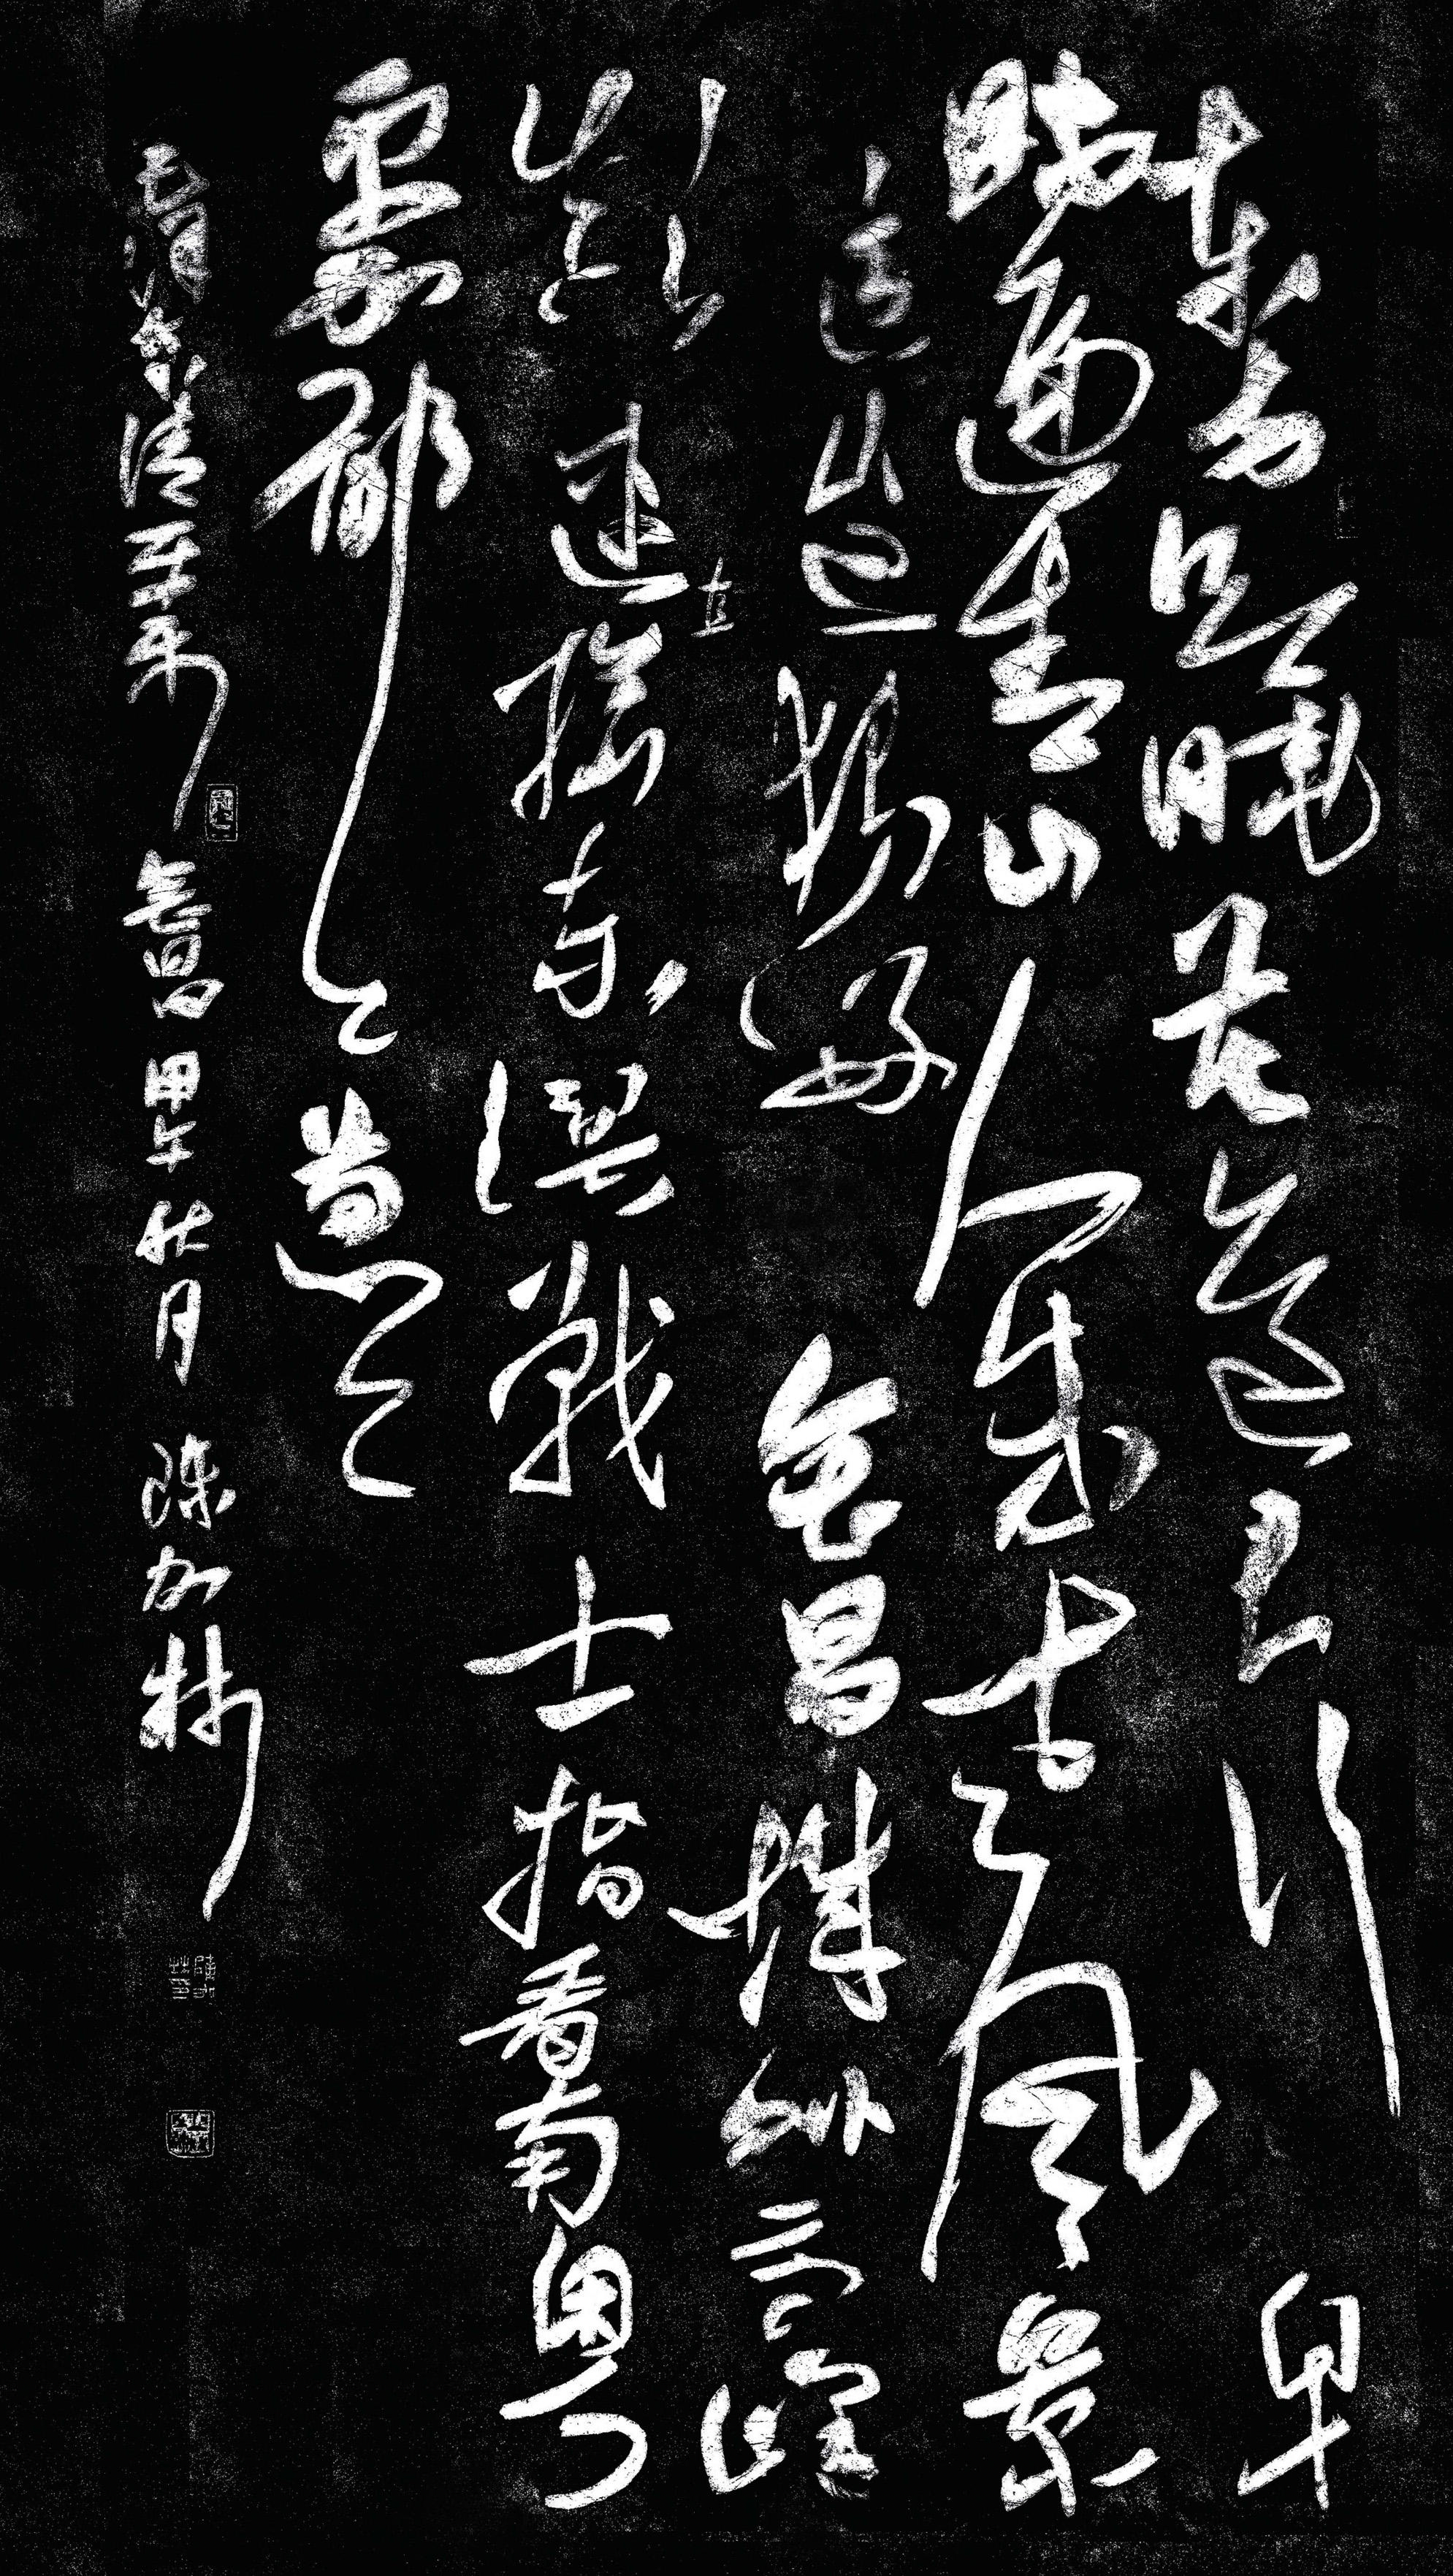 東方欲曉莫道君行早
踏遍青山人未老風景
這邊獨好會昌城外高峰
顛連直接東溟戰士指看南粵
更加郁々蔥々
毛澤東清平樂 會昌 甲午秋月 陳加林